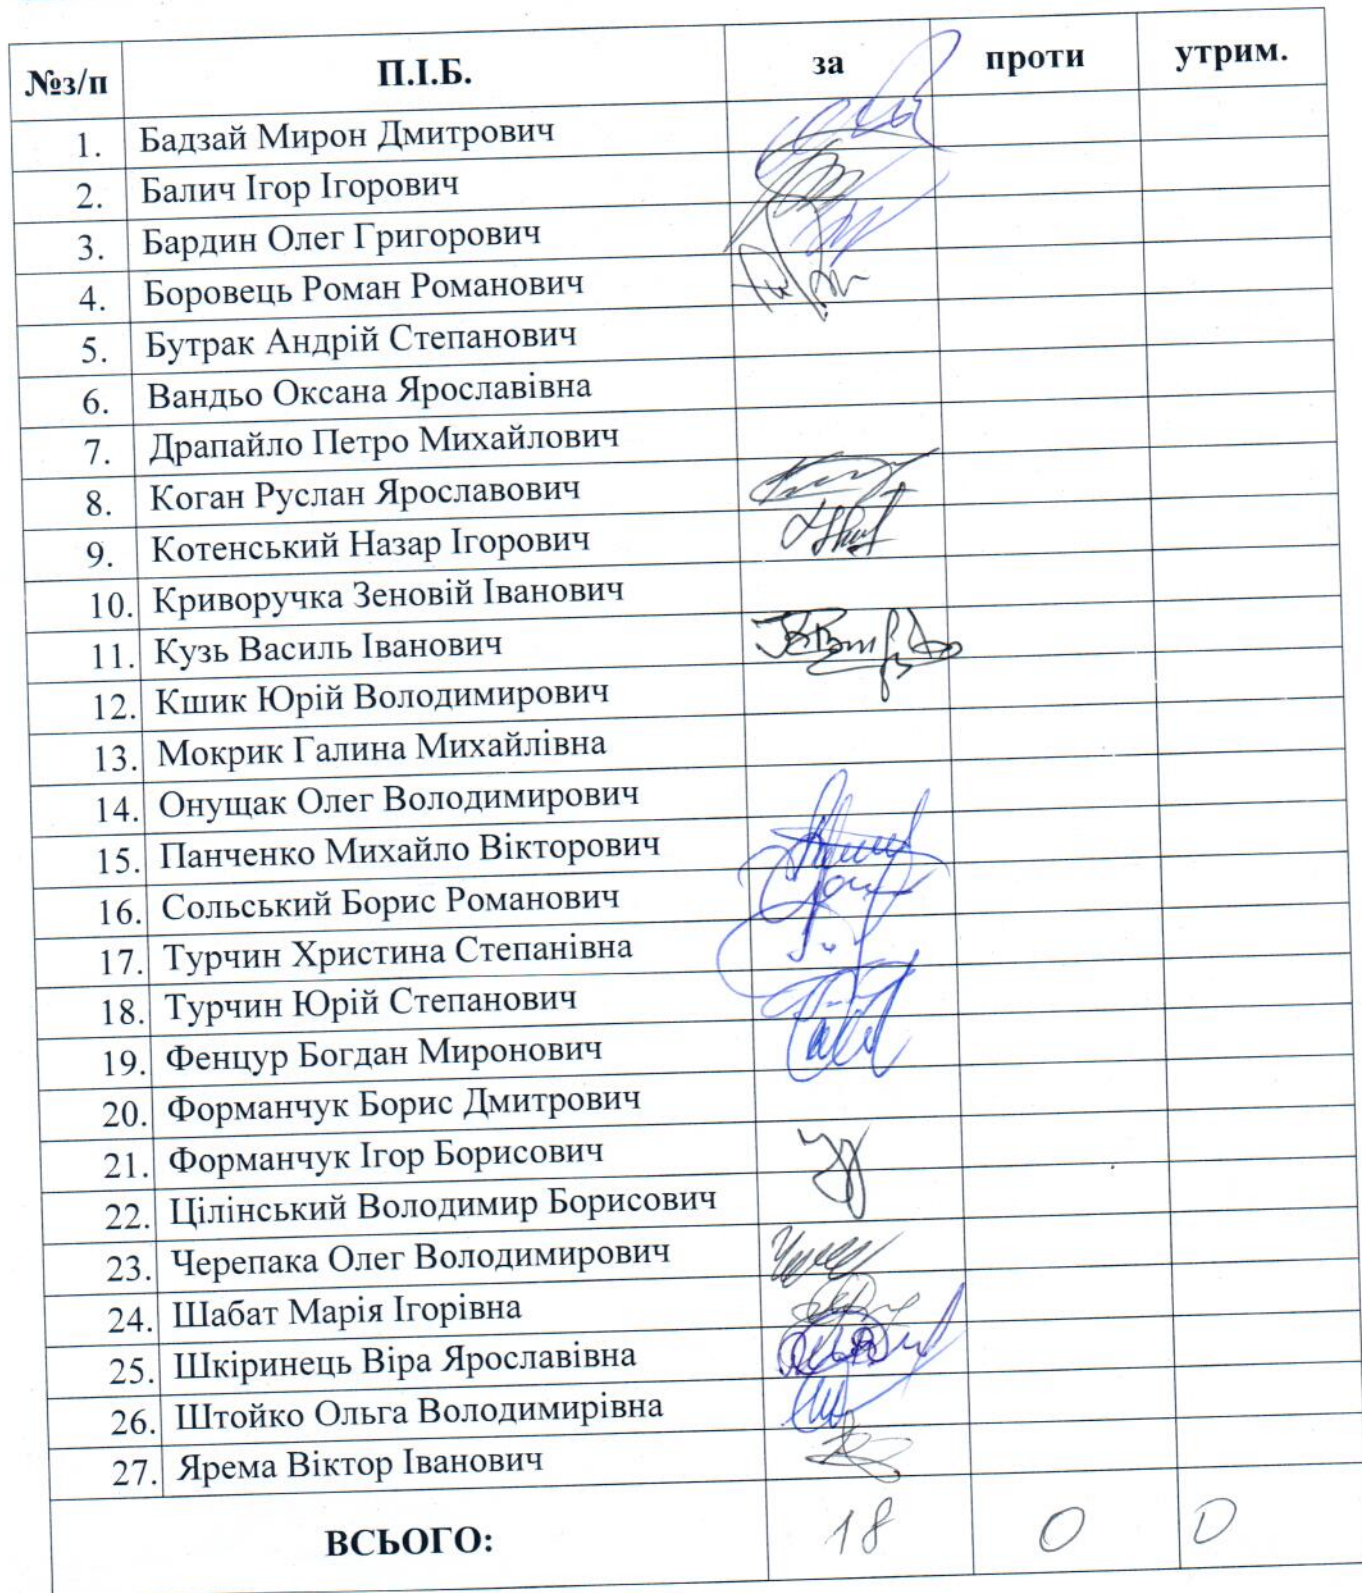 №з/п П.І.Б. за проти утрим.
1. Бадзай Мирон Дмитрович
2. Балич Ігор Ігорович
3. Бардин Олег Григорович
4. Боровець Роман Романович
5. Бутрак Андрій Степанович
6. Вандьо Оксана Ярославівна
7. Драпайло Петро Михайлович
8. Коган Руслан Ярославович
9. Котенський Назар Ігорович
10. Криворучка Зеновій Іванович
11. Кузь Василь Іванович
12. Кшик Юрій Володимирович
13. Мокрик Галина Михайлівна
14. Онущак Олег Володимирович
15. Панченко Михайло Вікторович
16. Сольський Борис Романович
17. Турчин Христина Степанівна
18. Турчин Юрій Степанович
19. Фенцур Богдан Миронович
20. Форманчук Борис Дмитрович
21. Форманчук Ігор Борисович
22. Цілінський Володимир Борисович
23. Черепака Олег Володимирович
24. Шабат Марія Ігорівна
25. Шкіринець Віра Ярославівна
26. Штойко Ольга Володимирівна
27. Ярема Віктор Іванович
ВСЬОГО: 18 0 0